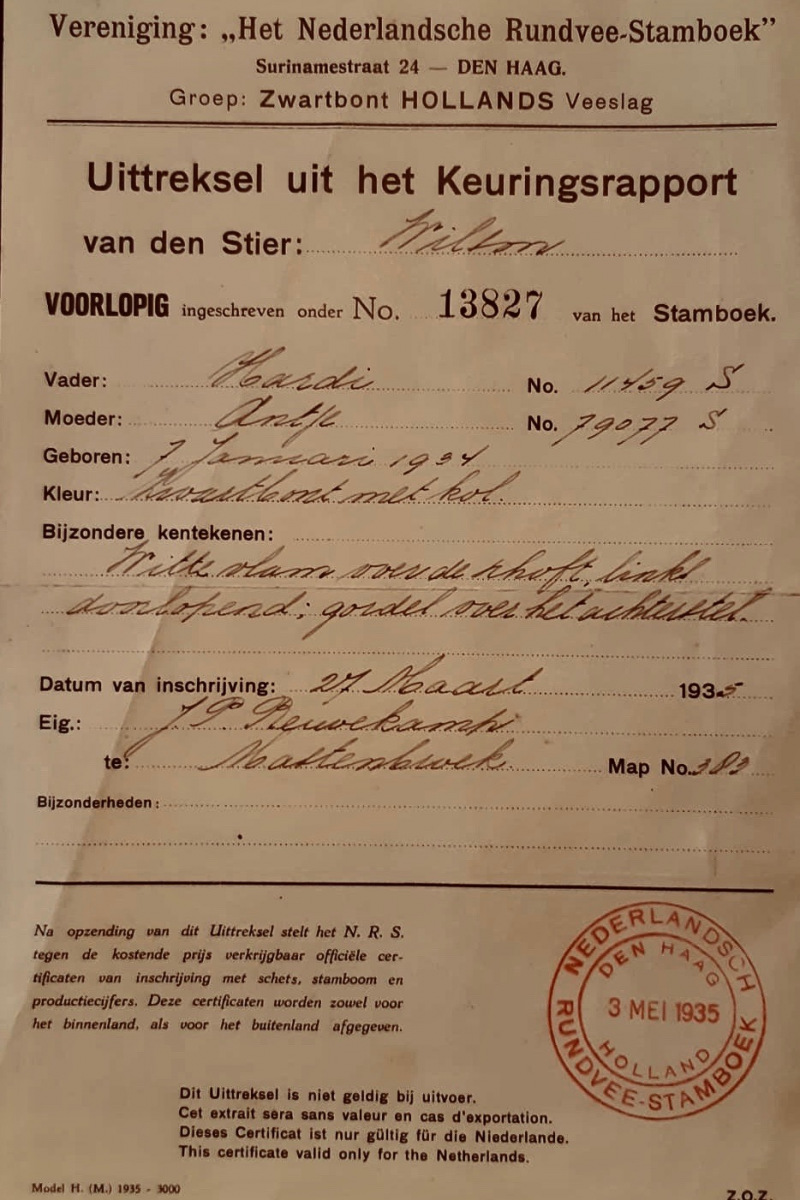 Vereniging: „Het Nederlandsche Rundvee-Stamboek”
Surinamestraat 24 — DEN HAAG.
Groep: Zwartbont HOLLANDS Veeslag
Uittreksel uit het Keuringsrapport
van den Stier: Wilson
VOORLOPIG ingeschreven onder No. 13827 van het Stamboek.
Vader: Hardi No. 11459 S
Moeder: Antje No. 79077 S
Geboren: 7 Januari 1934
Kleur: Zwartbont met kol.
Bijzondere kentekenen:
Witte vlam over de schoft, links
doorlopend; gordel over het achterstel.
Datum van inschrijving: 27 Maart 1935
Eig.: J P
te: Mastenbroek Map No. 383
Bijzonderheden:
Na opzending van dit Uittreksel stelt het N. R. S.
tegen de kostende prijs verkrijgbaar officiële cer-
tificaten van inschrijving met schets, stamboom en
productiecijfers. Deze certificaten worden zowel voor
het binnenland, als voor het buitenland afgegeven.
NEDERLANDSCH RUNDVEE-STAMBOEK
DEN HAAG
3 MEI 1935
HOLLAND
Dit Uittreksel is niet geldig bij uitvoer.
Cet extrait sera sans valeur en cas d'exportation.
Dieses Certificat ist nur gültig für die Niederlande.
This certificate valid only for the Netherlands.
Model H. (M.) 1935 - 3000
Z.O.Z.